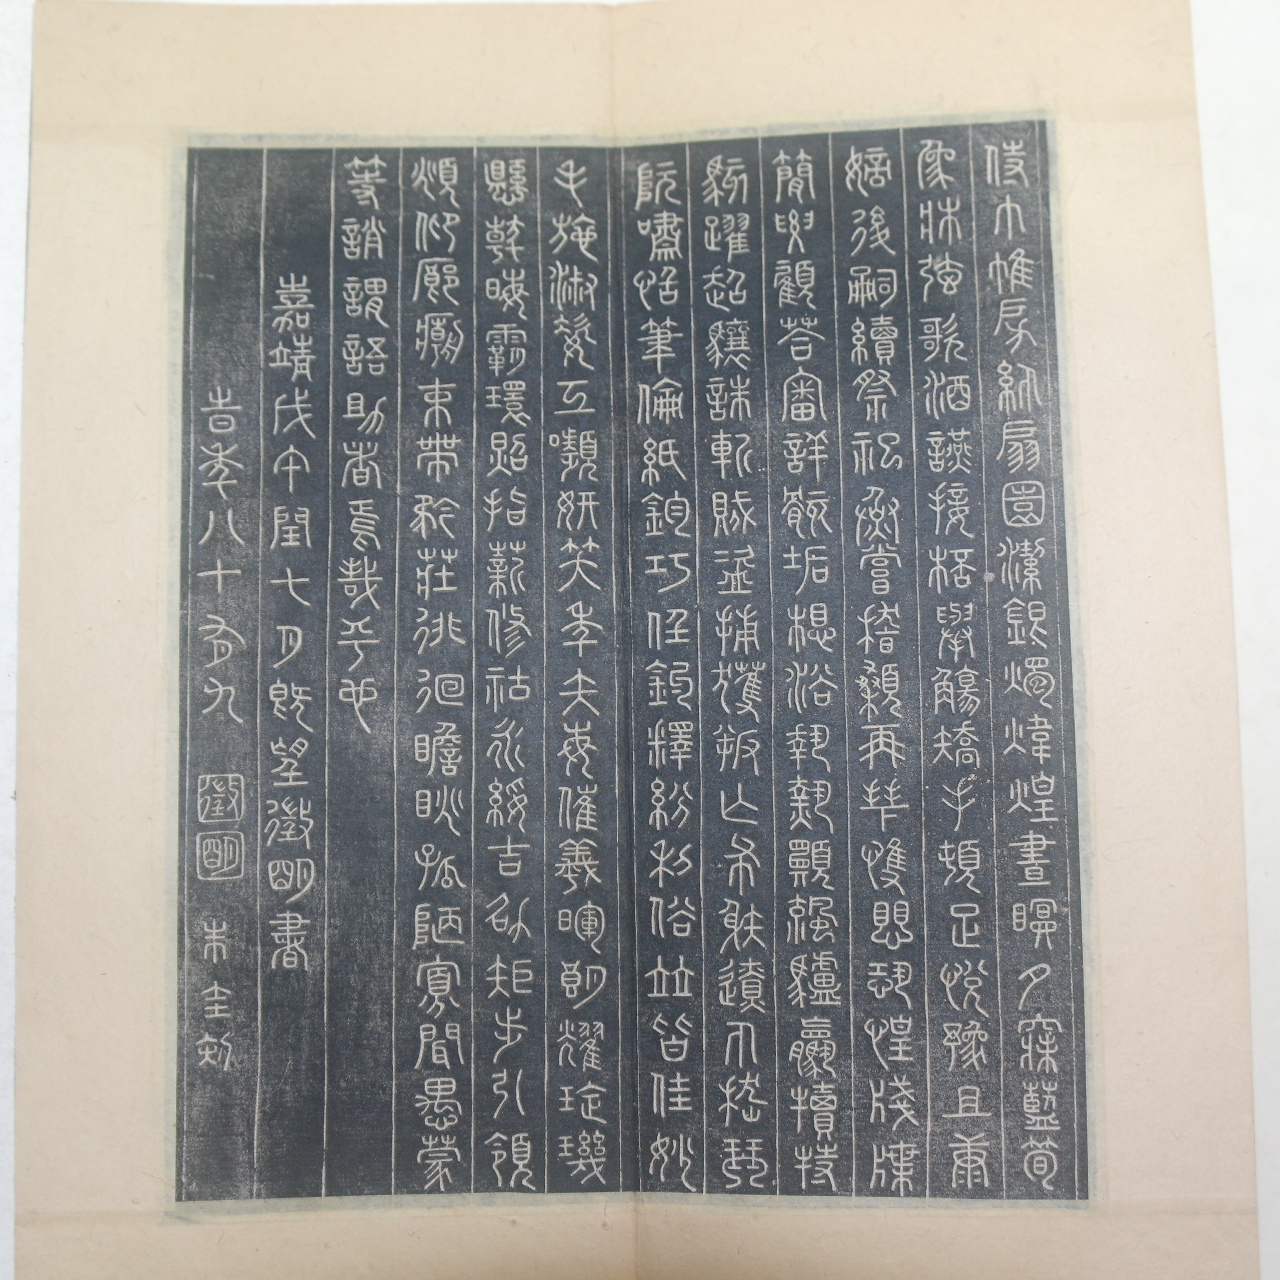 侍巾帷房紈扇圓潔銀燭煒煌晝暝夕寐藍筍
象牀弦歌酒讌接杯舉觴矯手頓足悅豫且康
嫡後嗣續祭祀烝嘗稽顙再拜悚懼恐惶牋牒
簡要顧荅審詳骸垢想浴執熱願涼驢騾犢特
駭躍超驤誅斬賊盜捕獲叛亡布射遼丸嵇琴
阮嘯恬筆倫紙鈞巧任釣釋紛利俗並皆佳妙
毛施淑姿工嚬妍笑年矢每催羲暉朗耀琁璣
懸斡晦霸環照指薪修祜永綏吉劭矩步引領
頫仰廊廟束帶矜莊徘徊瞻眺孤陋寡聞愚蒙
等誚謂語助者焉哉乎也
嘉靖戊午閏七月既望徵明書
旹年八十有九
徵明
朱圭刻